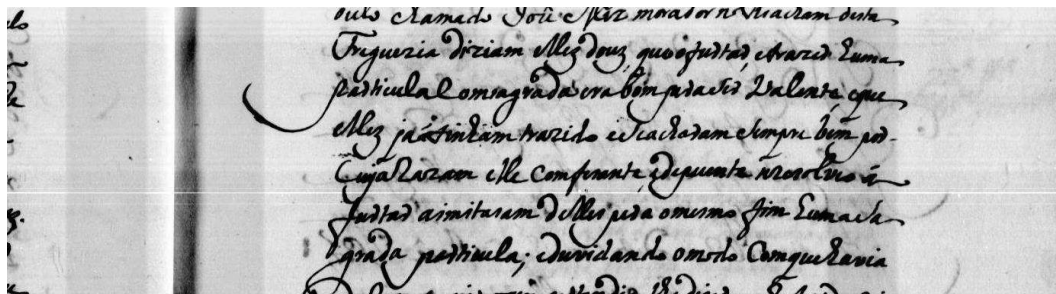 chamado José morador n
Freguezia diziam elles dous que o furtar, e trazer huma
particula Comsagrada era bom para ser Valente, e que
elles ja a tinham trazido e se achavam sempre bem por
Cuja Razam elle Comfitente e depuente se rezolveo a
furtar a imitasam delles pera o mesmo fim huma Sa
grada particula; e duvidando o modo Com que havia